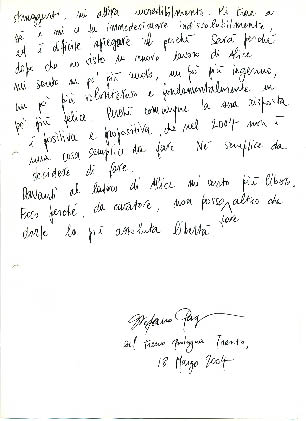 struggenti, mi attira irresistibilmente. Mi tira a
sé e mi ci fa immedesimare indissolubilmente,
ed è difficile spiegare il perché. Sarà perché
dopo che ho visto un nuovo lavoro di Alice
mi sento un po' più nudo, un po' più ingenuo,
un po' più e fondamentalmente un
po' più felice. Perché comunque la sua risposta
è positiva e propositiva, che nel 2004 non è
una cosa semplice da fare. Né semplice da
decidere di fare.
Davanti al lavoro di Alice mi sento più libero.
Ecco perché, da curatore, non posso fare altro che
darle la più assoluta libertà
Stefano
Trento,
18 Marzo 2004